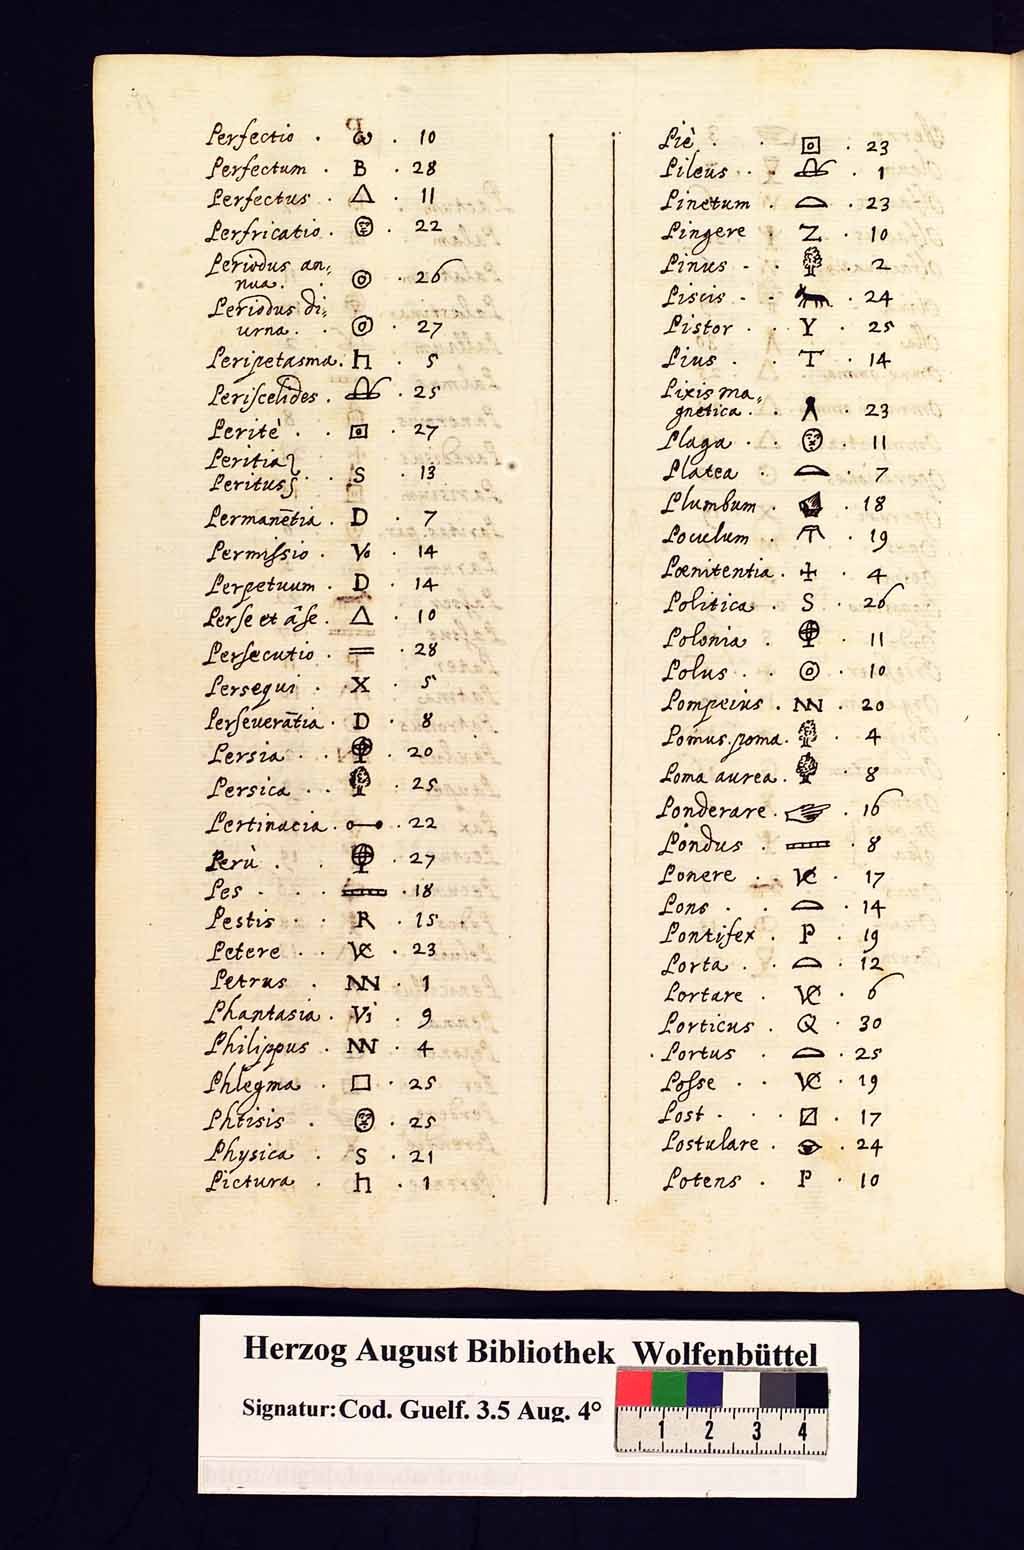 Perfectio . ω . 10
Perfectum . B . 28
Perfectus . △ . 11
Perfricatio . . 22
Periodus an„
nua . ◎ . 26
Periodus di„
urna . ◎ . 27
Peripetasma . h . 5
Periscelides . . 25
Peritè . . ⊡ . 27
Peritia
Peritus . S . 13
Permanētia . D . 7
Permissio . Vo . 14
Perpetuum . D . 14
Perse et āse . △ . 10
Persecutio . = . 28
Persequi . X . 5
Perseuerātia . D . 8
Persia . . 20
Persica . . . 25
Pertinacia . . 22
Perù . . . 27
Pes . . . . 18
Pestis . . R . 15
Petere . . . 23
Petrus . NN . 1
Phantasia . Vi . 9
Philippus . NN . 4
Phlegma . □ . 25
Phtisis . . 25
Physica . S . 21
Pictura . h . 1
Piè . . ⊡ . 23
Pileus . . . 1
Pinetum . . 23
Pingere . Z . 10
Pinus . . . 2
Piscis . . . 24
Pistor . Y . 25
Pius . T . 14
Pixis ma„
gnetica . . . 23
Plaga . . 11
Platea . . 7
Plumbum . . 18
Poculum . . 19
Pœnitentia . ✢ . 4
Politica . S . 26
Polonia . . 11
Polus . . ◎ . 10
Pompeius . NN . 20
Pomus. poma . . 4
Poma aurea . . 8
Ponderare . . 16
Pondus . . 8
Ponere . . 17
Pons . . . 14
Pontifex . P . 19
Porta . . . 12
Portare . . 6
Porticus . Q . 30
. Portus . . 25
Posse . . . 19
Post . . . 17
Postulare . . 24
Potens . P . 10
Herzog August Bibliothek Wolfenbüttel
Signatur: Cod. Guelf. 3.5 Aug. 4°
1 2 3 4